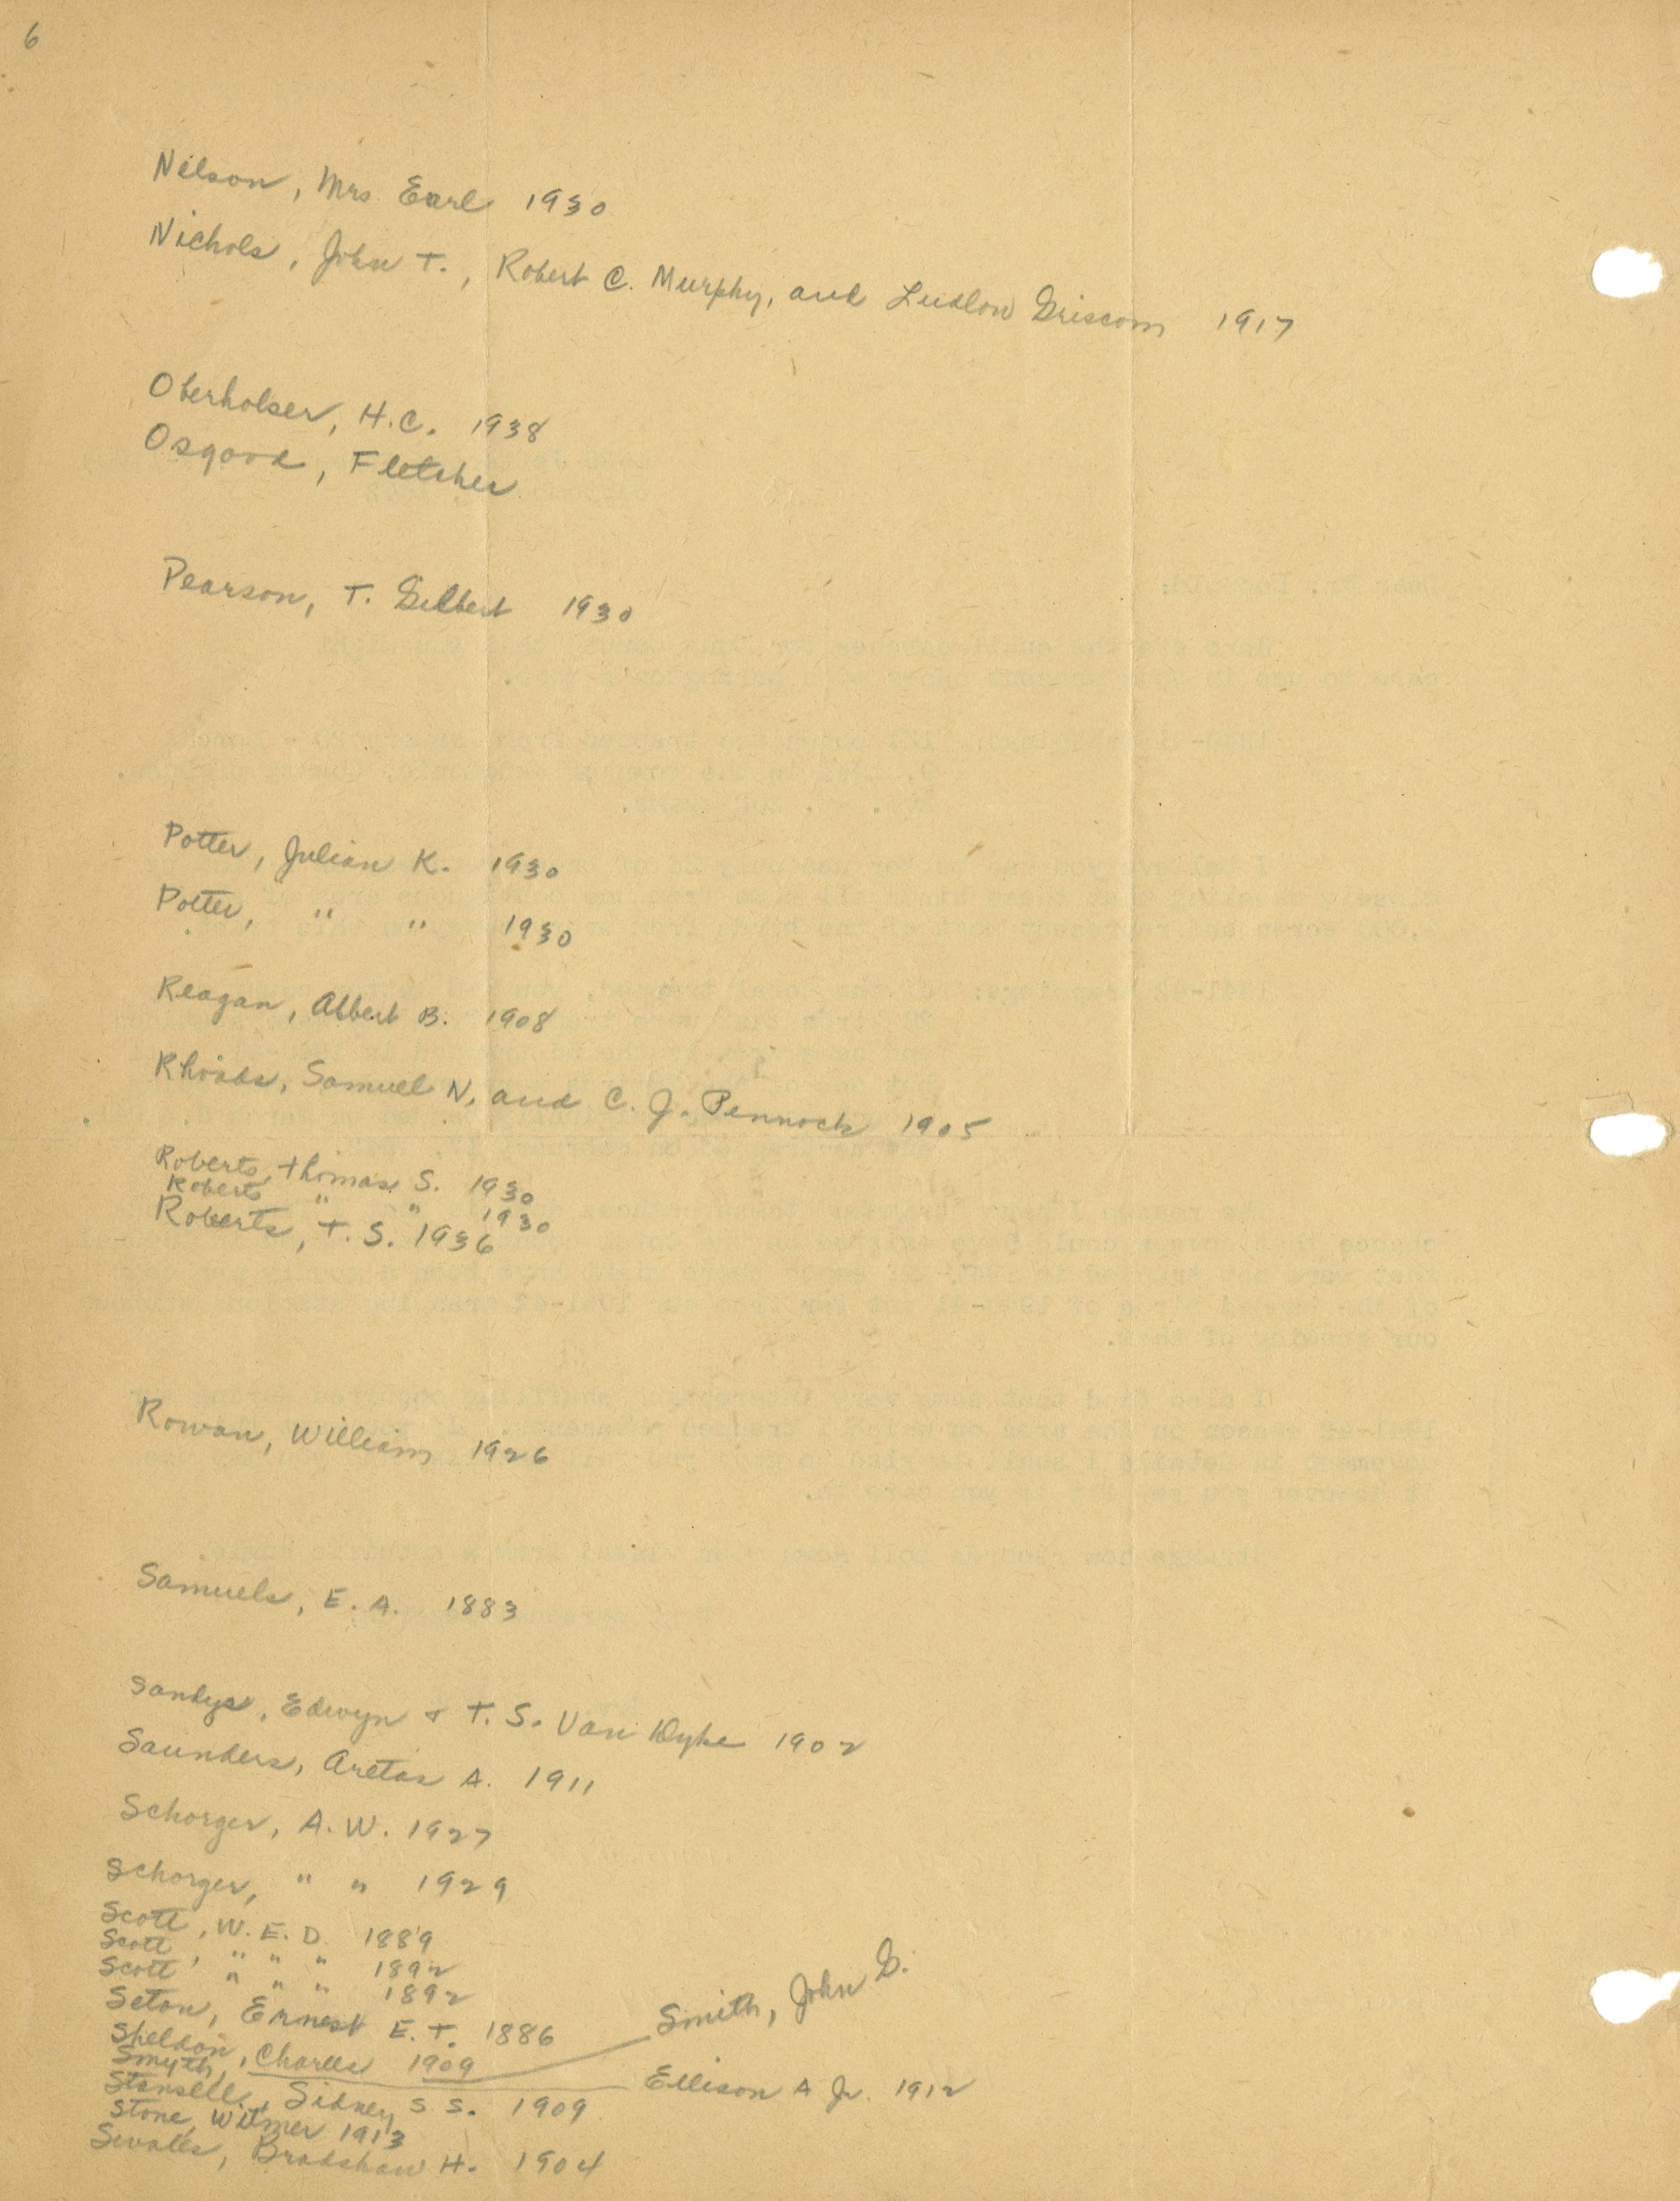 6
Nelson, Mrs. Earl 1930
Nichols, John T., Robert C. Murphy, and Ludlow Griscom 1917
Oberholser, H.C. 1938
Osgood, Fletcher
Pearson, T. Gilbert 1930
Potter, Julian K. 1930
Potter, " " 1930
Reagan, Albert B. 1908
Rhoads, Samuel N. and C. J. Pennock 1905
Roberts, Thomas S. 1930
Roberts " " 1930
Roberts, T. S. 1936
Rowan, William 1926
Samuels, E. A. 1883
Sandys, Edwyn & T. S. Van Dyke 1902
Saunders, Aretas A. 1911
Schorger, A. W. 1927
Schorger, " " 1929
Scott, W. E. D. 1889
Scott, " " " 1892
Scott " " " 1892
Seton, Ernest E. T. 1886
Sheldon, Charles 1909
Smith, John G.
Smyth, Ellison A Jr. 1912
Stansell, Sidney S. S. 1909
Stone, Witmer 1913
Swales, Bradshaw H. 1904